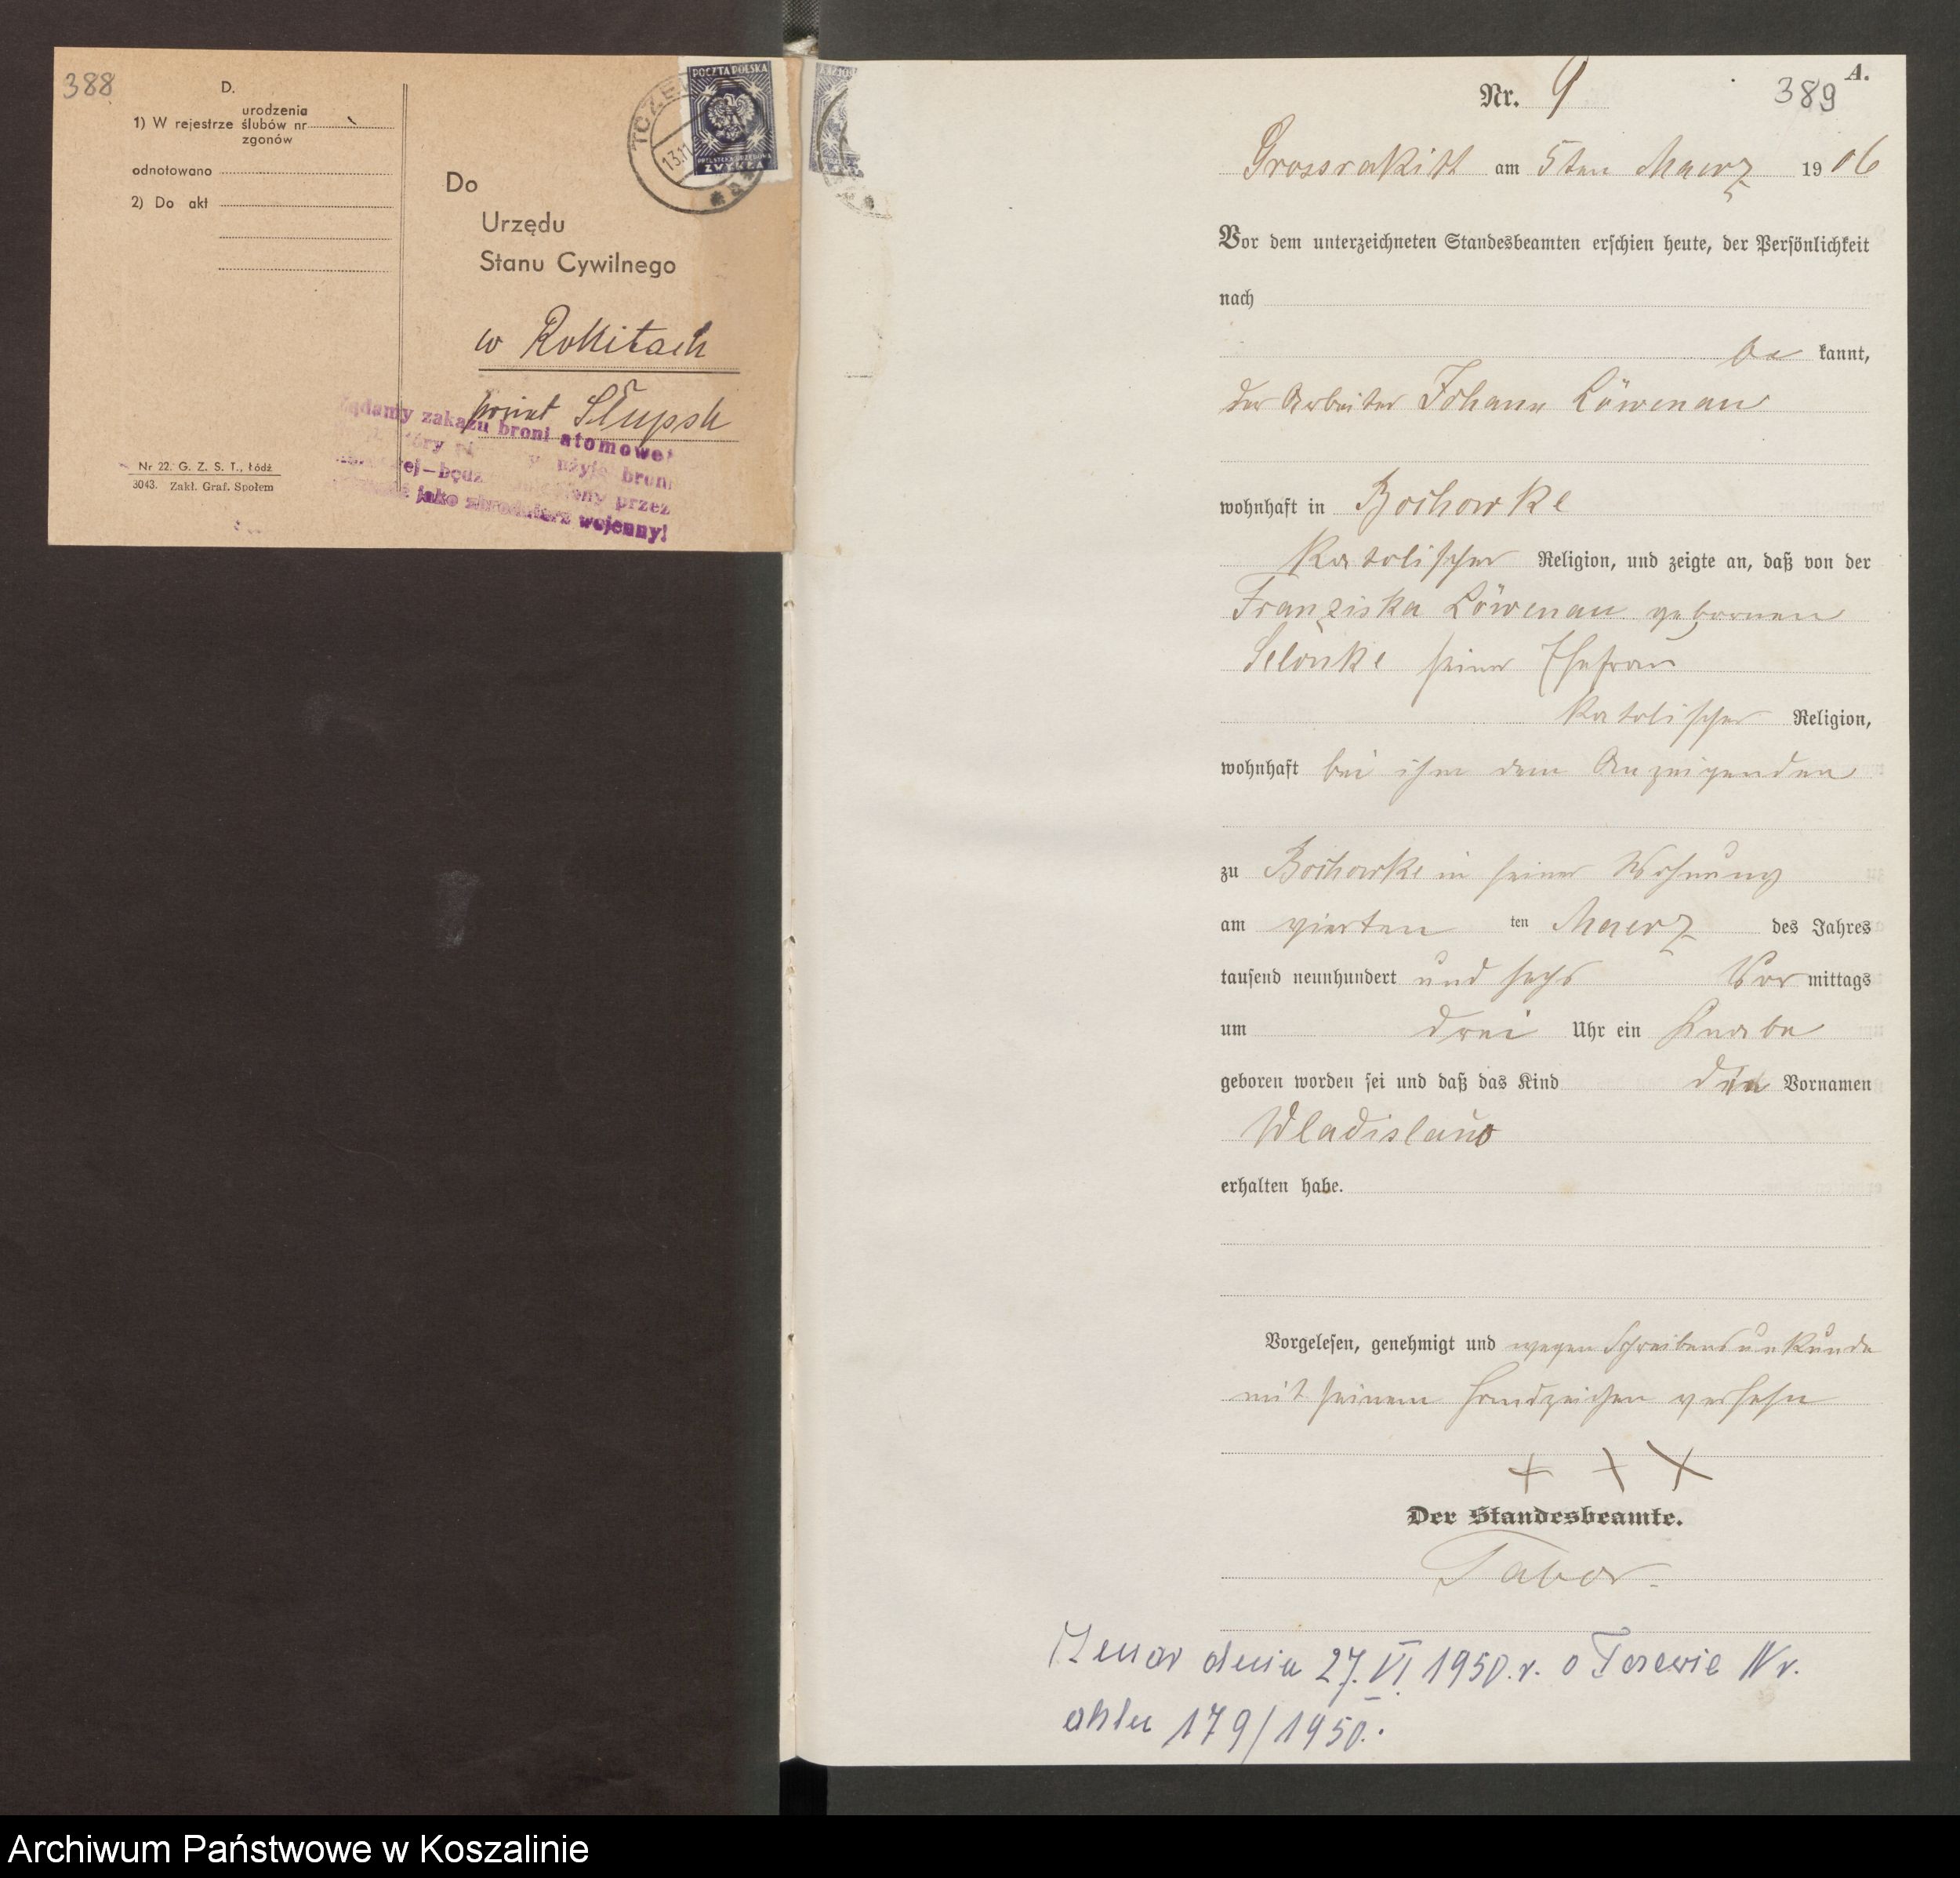 388
D.
urodzenia
1) W rejestrze ślubów nr
zgonów
odnotowano
2) Do akt
Nr 22. G. Z. S. T., Łódź
3043. Zakł. Graf. Społem
POCZTA POLSKA
ZWYKŁA
TCZE
13.11
Do
Urzędu
Stanu Cywilnego
w Rokitach
powiat Słupsk
ądamy zakazu broni atomowej
użyje broni
ej—będz przez
jako zbrodniarz wojenny!
A.
389
Nr. 9
Grossrakitt am 5ten Maerz 1906
Vor dem unterzeichneten Standesbeamten erschien heute, der Persönlichkeit
nach
be kannt,
der Arbeiter Johann Löwenau
wohnhaft in Bochowke
katolischer Religion, und zeigte an, daß von der
Franziska Löwenau gebornen
Selonke seiner Ehefrau
katolischer Religion,
wohnhaft bei ihm dem Anzeigenden
zu Bochowke in seiner Wohnung
am vierten ten Maerz des Jahres
tausend neunhundert und sechs Vor mittags
um drei Uhr ein Knabe
geboren worden sei und daß das Kind den Vornamen
Wladislaus
erhalten habe.
Vorgelesen, genehmigt und wegen Schreibensunkunde
mit seinem Handzeichen versehn
+ + +
Der Standesbeamte.
Tabor.
dnia 27.VI 1950.r. Tczewie Nr.
aktu 179/1950.
Archiwum Państwowe w Koszalinie